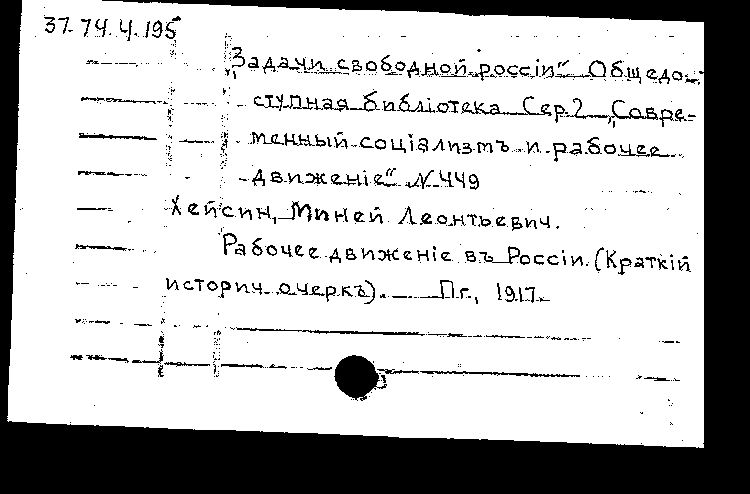 37.74.4.195
„Задачи свободной россіи“ Общедо-
ступная библіотека Сер.2 „Совре-
менный соціализмъ и рабочее
движеніе“ №449
Хейсин, Миней Леонтьевич.
Рабочее движеніе въ Россіи. (Краткій
историч. очеркъ). Пг., 1917.